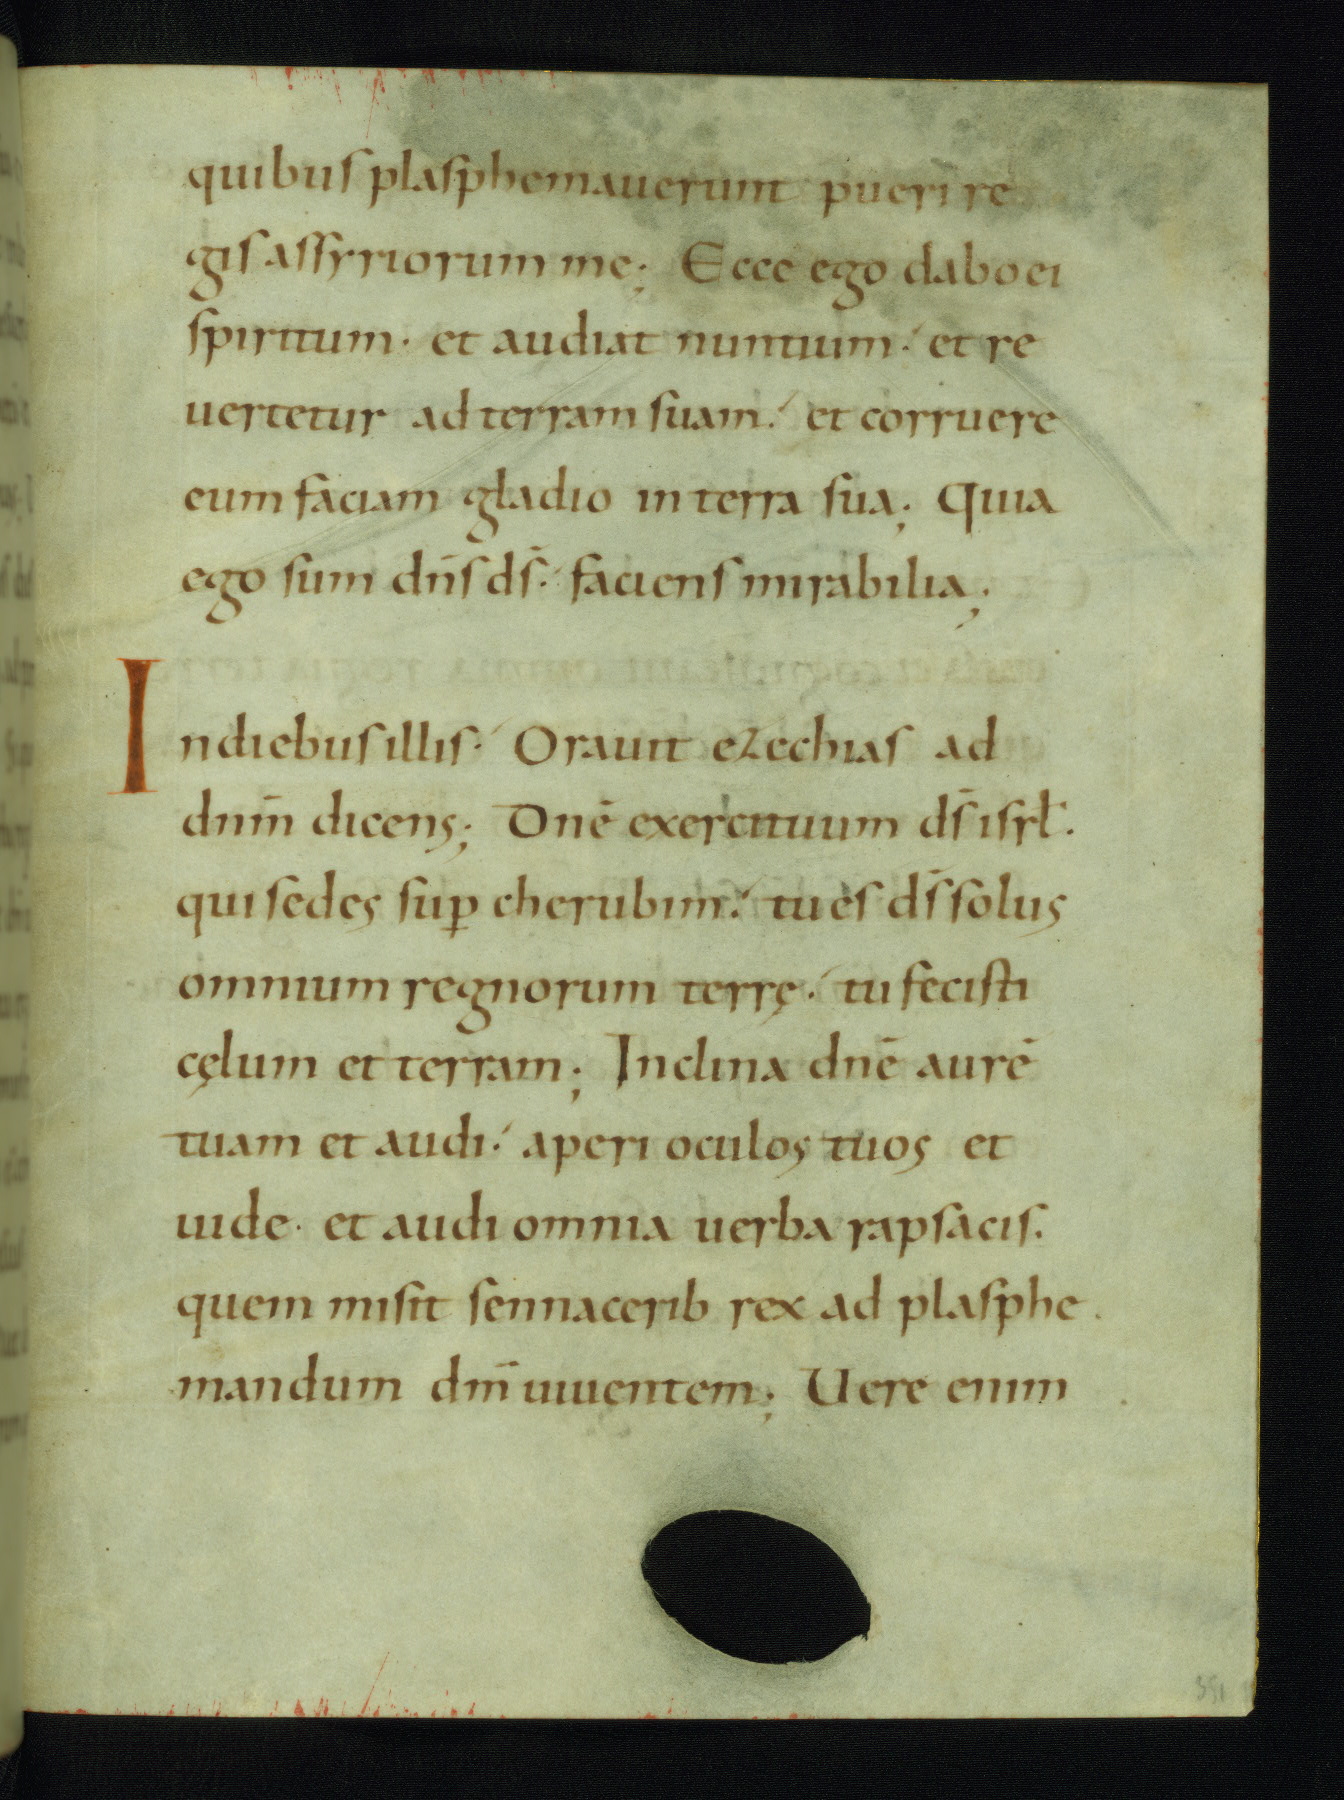 quibus plasphemauerunt pueri re
gis assyriorum me; Ecce ego dabo ei
spiritum· et audiat nuntium·́ et re
uertetur ad terram suam·́ et corruere
eum faciam gladio in terra sua; Quia
ego sum dn̄s ds̄·́ faciens mirabilia;
In diebus illis·́ Orauit ezechias ad
dnm̄ dicens; Dnē exercituum ds̄ isrƚ.
qui sedes suꝑ cherubim·́ tu es ds̄ solus
omnium regnorum terrę·́ tu fecisti
cęlum et terram; Inclina dnē aurē
tuam et audi·́ aperi oculos tuos et
uide· et audi omnia uerba rapsacis.
quem misit sennacerib rex ad plasphe
mandum dm̄ uiuentem; Uere enim
351